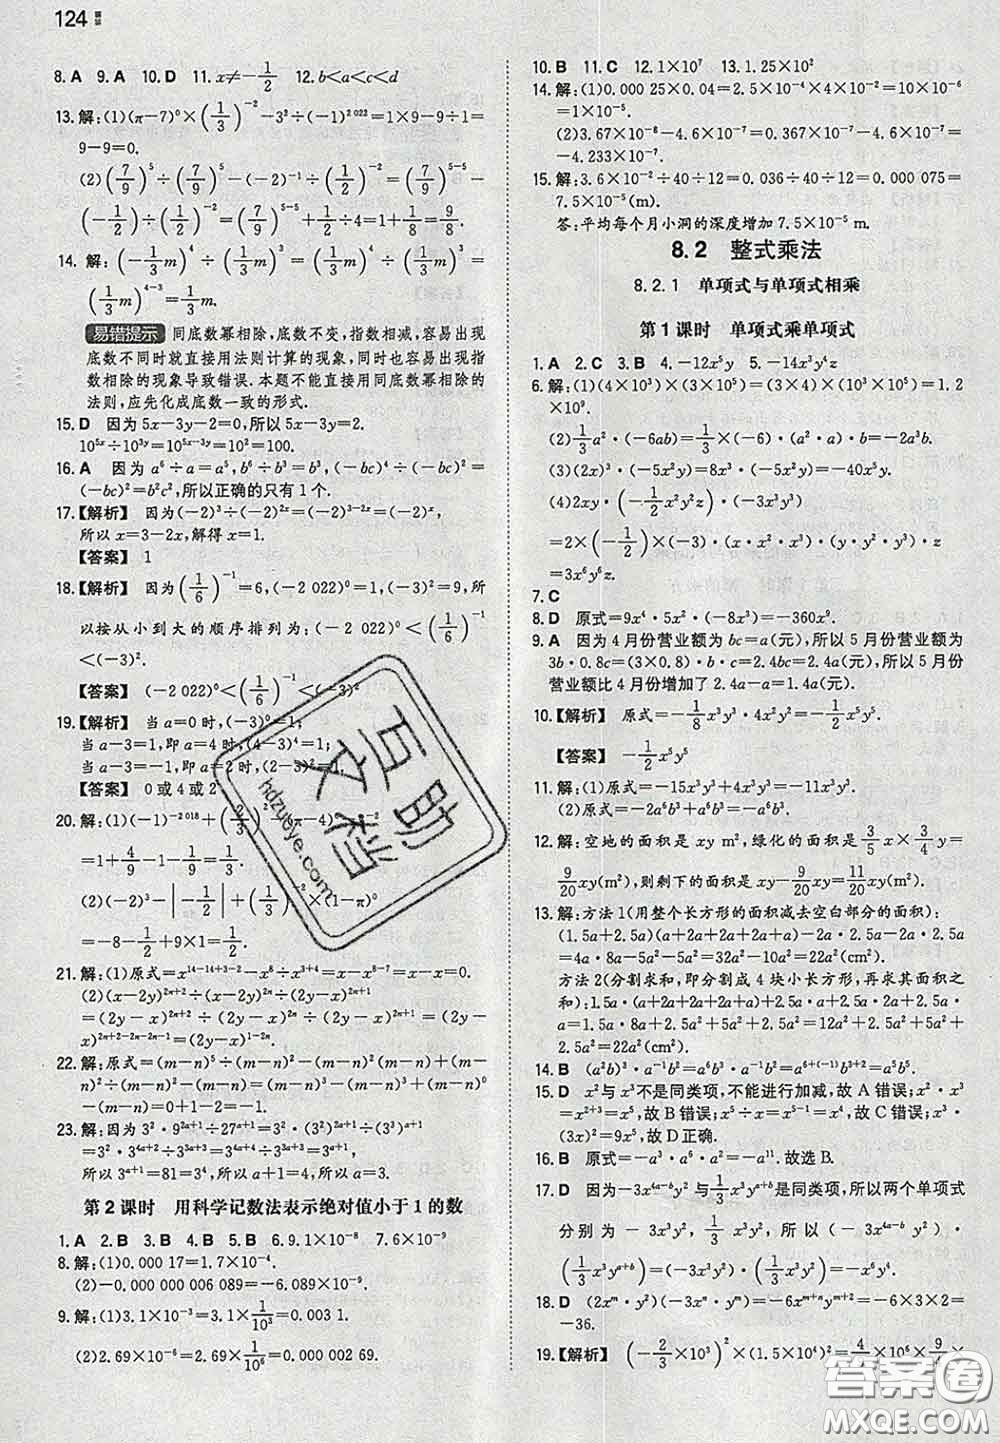 124
8. A 9. A 10. D 11. x≠-1/2 12. b<a<c<d
13. 解:(1)(π-7)⁰×(1/3)⁻²-3²÷(-1)²⁰²²=1×9-9÷1=
9-9=0.
(2)(7/9)⁵÷(7/9)⁵-(-2)⁻¹÷(1/2)⁻²=(7/9)⁵⁻⁵
-(-1/2)÷(1/2)⁻²=(7/9)⁵⁻⁵+1/2÷4=1+1/8=9/8.
14. 解:(-1/3m)⁴÷(1/3m)³=(1/3m)⁴÷(1/3m)³=
(1/3m)⁴⁻³=1/3m.
易错提示 同底数幂相除,底数不变,指数相减,容易出现
底数不同时就直接用法则计算的现象,同时也容易出现指
数相除的现象导致错误.本题不能直接用同底数幂相除的
法则,应先化成底数一致的形式.
15. D 因为5x-3y-2=0,所以5x-3y=2.
10⁵ˣ÷10³ʸ=10⁵ˣ⁻³ʸ=10²=100.
16. A 因为a⁶÷a=a⁵,b⁶÷b³=b³,(-bc)⁴÷(-bc)²=
(-bc)²=b²c²,所以正确的只有1个.
17.【解析】 因为(-2)³÷(-2)²ˣ=(-2)³⁻²ˣ=(-2)ˣ,
所以x=3-2x,解得x=1.
【答案】 1
18.【解析】 因为(1/6)⁻¹=6,(-2 022)⁰=1,(-3)²=9,所
以按从小到大的顺序排列为:(-2 022)⁰<(1/6)⁻¹
<(-3)².
【答案】 (-2 022)⁰<(1/6)⁻¹<(-3)²
19.【解析】 当a=0时,(-3)⁰=1;
当a-3=1,即a=4时,(4-3)⁴=1;
当a-3=-1,即a=2时,(2-3)²=1.
【答案】 0或4或2
20. 解:(1)(-1)⁻²⁰¹⁸+(2/3)
=1+4/9-1-1/3=1/9.
(2)(-2)³-|-1/2|+(1/3)⁻²×(1-π)⁰
=-8-1/2+9×1=1/2.
21. 解:(1)原式=x¹⁴⁻¹⁴⁺³⁻²-x⁸÷x³⁺⁴=x-x⁸⁻⁷=x-x=0.
(2)(x-2y)²ⁿ⁺²÷(2y-x)²ⁿ÷(2y-x)²ⁿ⁻¹
=(2y-x)²ⁿ⁺²÷(2y-x)²ⁿ÷(2y-x)²ⁿ⁻¹=(2y-
x)²ⁿ⁺²⁻²ⁿ⁻²ⁿ⁺¹=(2y-x)³⁻²ⁿ.
22. 解:原式=(m-n)⁵÷(m-n)²-(m-n)²(m-n)+(m-
n)²÷(m-n)²=(m-n)³-(m-n)³+(m-n)⁰
-(m-n)=0+1-2=-1.
23. 解:因为3²·9²ᵃ⁺¹÷27ᵃ⁺¹=3²·(3²)²ᵃ⁺¹÷(3³)ᵃ⁺¹
=3²·3⁴ᵃ⁺²÷3³ᵃ⁺³=3⁴ᵃ⁺⁴÷3³ᵃ⁺³=3ᵃ⁺¹,
所以3ᵃ⁺¹=81=3⁴,所以a+1=4,所以a=3.
第2课时 用科学记数法表示绝对值小于1的数
1. A 2. B 3. B 4. B 5. B 6. 9.1×10⁻⁸ 7. 6×10⁻⁹
8. 解:(1)0.000 17=1.7×10⁻⁴.
(2)-0.000 000 006 089=-6.089×10⁻⁹.
9. 解:(1)3.1×10⁻³=3.1×1/10³=0.003 1.
(2)2.69×10⁻⁶=2.69×1/10⁶=0.000 002 69.
10. B 11. C 12. 1×10⁷ 13. 1.25×10²
14. 解:(1)0.000 25×0.04=2.5×10⁻⁴×4×10⁻²=10×10⁻⁶
=1×10⁻⁵.
(2)3.67×10⁻⁸-4.6×10⁻⁷=0.367×10⁻⁷-4.6×10⁻⁷=
-4.233×10⁻⁷.
15. 解:3.6×10⁻²÷40÷12=0.036÷40÷12=0.000 075=
7.5×10⁻⁵(m).
答:平均每个月小洞的深度增加7.5×10⁻⁵ m.
8.2 整式乘法
8.2.1 单项式与单项式相乘
第1课时 单项式乘单项式
1. A 2. C 3. B 4. -12x⁵y 5. -14x³y⁴z
6. 解:(1)(4×10³)×(3×10⁵)=(3×4)×(10³×10⁵)=1.2
×10⁹.
(2)1/3a²·(-6ab)=1/3×(-6)·(a²·a)·b=-2a³b.
(3)(2x)³·(-5x²y)=8x³·(-5x²y)=-40x⁵y.
(4)2xy·(-1/2x²y²z)·(-3x³y³)
=2×(-1/2)×(-3)·(x·x²·x³)·(y·y²·y³)·z
=3x⁶y⁶z.
7. C
8. D 原式=9x⁴·5x²·(-8x³)=-360x⁹.
9. A 因为4月份营业额为bc=a(元),所以5月份营业额为
3b·0.8c=(3×0.8)·bc=2.4bc=2.4a(元),所以5月份
营业额比4月份增加了2.4a-a=1.4a(元).
10.【解析】 原式=-1/8x³y³·4x²y²=-1/2x⁵y⁵.
【答案】 -1/2x⁵y⁵
11. 解:(1)原式=-15x³y³+4x³y³=-11x³y³.
(2)原式=-2a⁶b³+a⁶b³=-a⁶b³.
12. 解:空地的面积是xy m²,绿化的面积是3/5x×3/4y=
9/20xy(m²),则剩下的面积是xy-9/20xy=11/20xy(m²).
13. 解:方法1(用整个长方形的面积减去空白部分的面积):
(1.5a+2.5a)(a+2a+2a+2a+a)-2a·2.5a-2a·2.5a
=4a·8a-5a²-5a²=32a²-10a²=22a²(cm²).
方法2(分割求和,即分割成4块小长方形,再求其面积之
和):1.5a·(a+2a+2a+2a+a)+2.5a·a+2.5a·2a+2.5a·a
=1.5a·8a+2.5a²+5a²+2.5a²=12a²+2.5a²+5a²+
2.5a²=22a²(cm²).
14. B (a²b)³·a⁻¹b²=a⁶b³·a⁻¹b²=a⁶⁺⁽⁻¹⁾b³⁺²=a⁵b⁵.
15. D x²与x³不是同类项,不能进行加减,故A错误;x²·x³
=x²⁺³=x⁵,故B错误;x⁵÷x=x⁵⁻¹=x⁴,故C错误;
(3x)²=9x²,故D正确.
16. B 原式=-a³·a⁶·a²=-a¹¹.故选B.
17. D 因为-3x⁴ᵃ⁻ᵇy²与1/3x³yᵃ⁺ᵇ是同类项,所以两个单项式
分别为-3x³y²,1/3x³y²,所以(-3x⁴ᵃ⁻ᵇy²)·
(1/3x³yᵃ⁺ᵇ)=(-3x³y²)·(1/3x³y²)=-x⁶y⁴.
18. D (2xᵐ·yⁿ)·(-3xⁿyᵐ)=-6xᵐ⁺ⁿyᵐ⁺ⁿ=-6×3×2=
-36.
19.【解析】 (-2/3×10³)²×(1.5×10⁴)²=4/9×10⁶×9/4×
互助文档
hdzuoye.com
答案圈
MXQE.COM